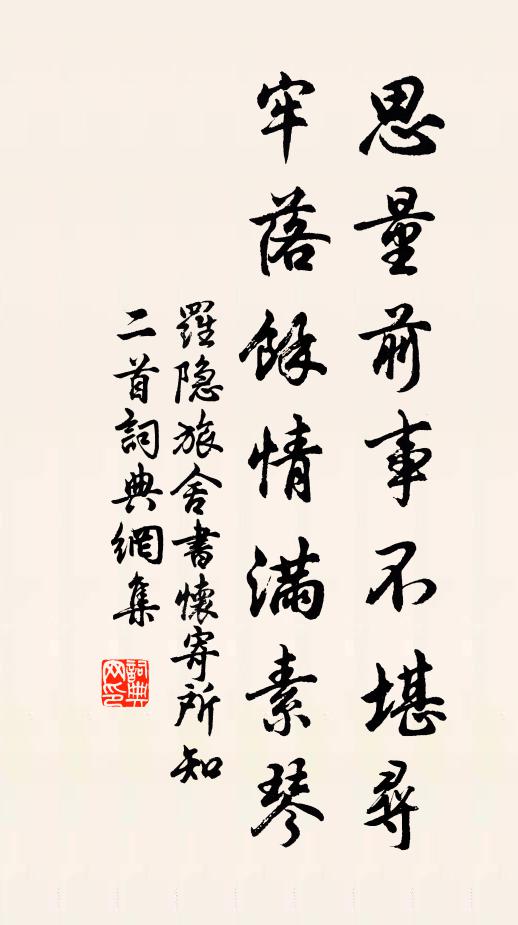 思量前事不堪尋
牢落餘情滿素琴
羅隐旅舍書懷寄所知
二首詞典網集
詞典
网印